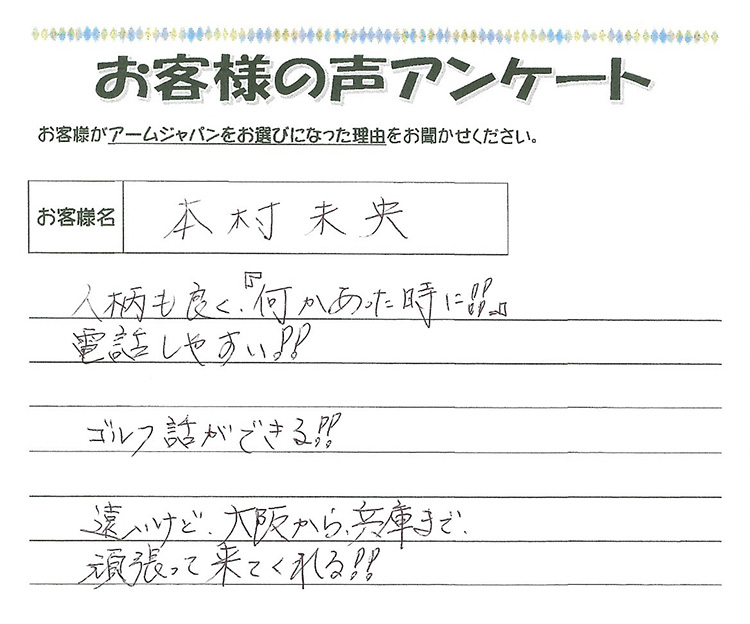 お客様の声アンケート
お客様がアームジャパンをお選びになった理由をお聞かせください。
お客様名 本村未央
人柄も良く、『何かあった時に!!』
電話しやすい!!
ゴルフ話ができる!!
遠いけど、大阪から、兵庫まで、
頑張って来てくれる!!